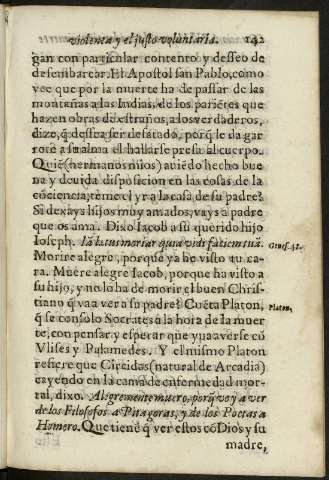 violenta y el justo voluntaria. 142
gan con particular contento y desseo de
desembarcar. El Apostol san Pablo, como
vee que por la muerte ha de passar de las
montañas a las Indias, de los pariẽtes que
hazen obras de estraños, a los verdaderos,
dize, q̃ dessea ser desatado, porq̃ le da gar
rote a su alma el hallarse presa al cuerpo.
Quiẽ (hermanos mios) auiẽdo hecho bue
na y deuida disposicion en las cosas de la
cõciencia, teme el yr a la casa de su padre?
Si dexays hijos muy amados, vays a padre
que os ama. Dixo Iacob a su querido hijo
Ioseph. Iã lætus moriar quia vidi faciem tuã. Genes. 42.
Morire alegre, porque ya he visto tu ca-
ra. Muere alegre Iacob, porque ha visto a
su hijo, y no lo ha de morir el buen Chris-
tiano q̃ va a ver a su padre? Cuẽta Platon, Platon.
q̃ se consolo Socrates a la hora de la muer
te, con pensar, y esperar que yua a verse cõ
Vlises y Palamedes. Y el mismo Platon
refiere que Circidas (natural de Arcadia)
cayendo en la cama de enfermedad mor-
tal, dixo. Alegremente muero, porq̃ voy a ver
de los Filosofos a Pitagoras, y de los Poetas a
Homero. Que tiene q̃ ver estos cõ Dios y su
madre,